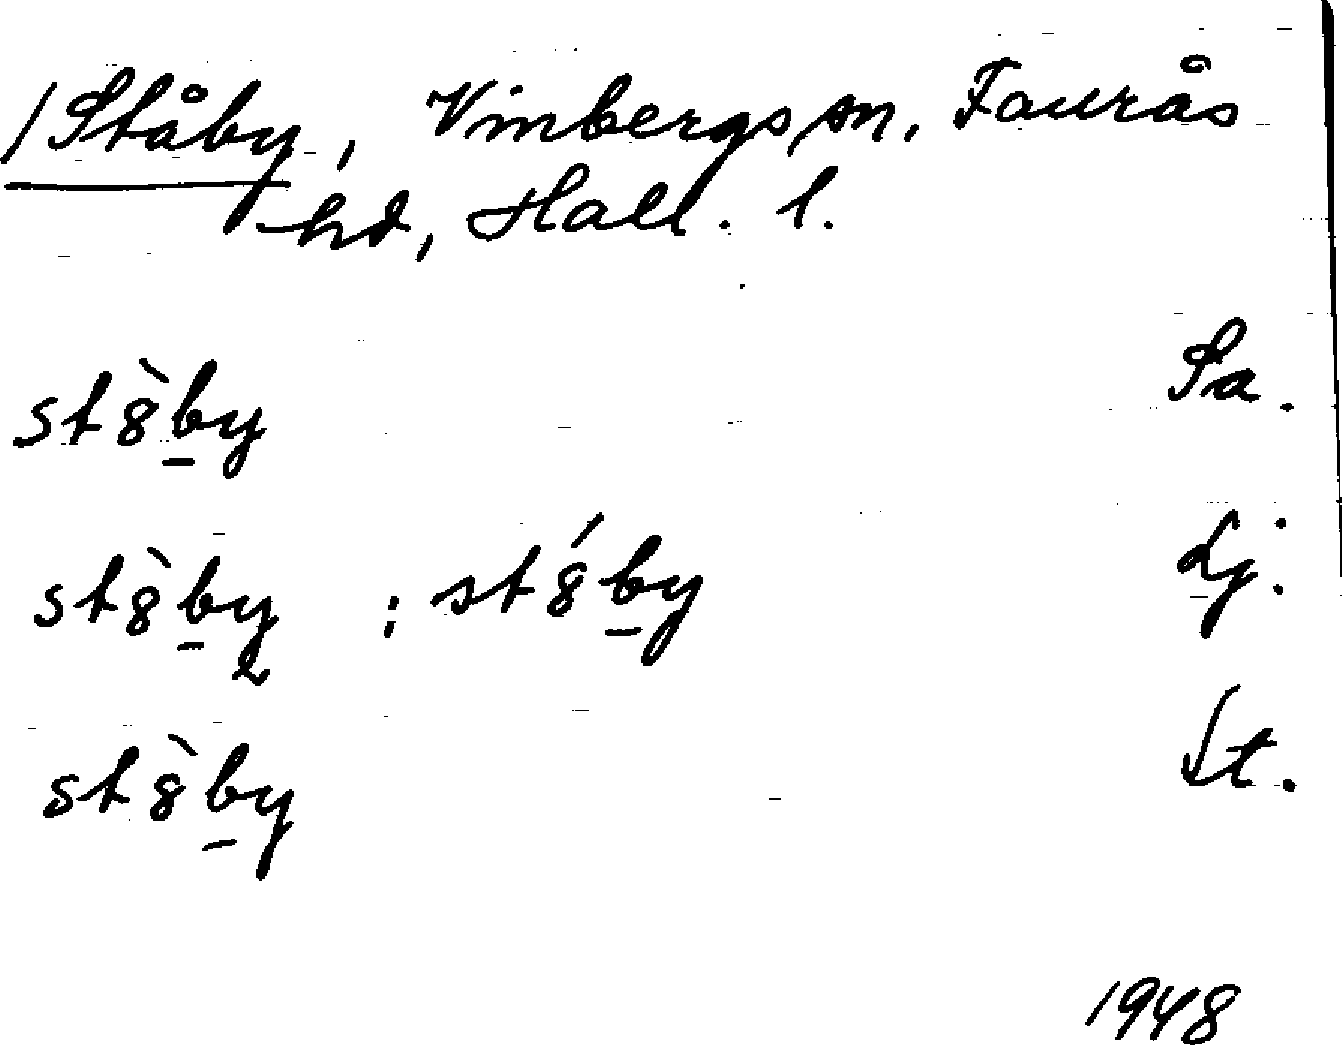 /Ståby, Vinbergs sn, Faurås
hd, Hall. l.
st8̀b̲y Sa.
st8̀b̲y ; st8́b̲y Lj.
st8̀b̲y St.
1948